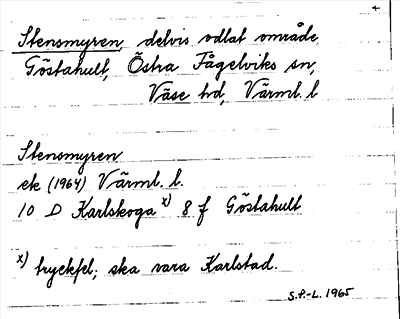 Stensmyren, delvis odlat område,
Göstahult, Östra Fågelviks sn,
Väse hd, Värml. l
Stensmyren
ek (1964) Värml. l.
10 D Karlskoga x) 8 f Göstahult
x) tryckfel; ska vara Karlstad.
S.P.-L. 1965